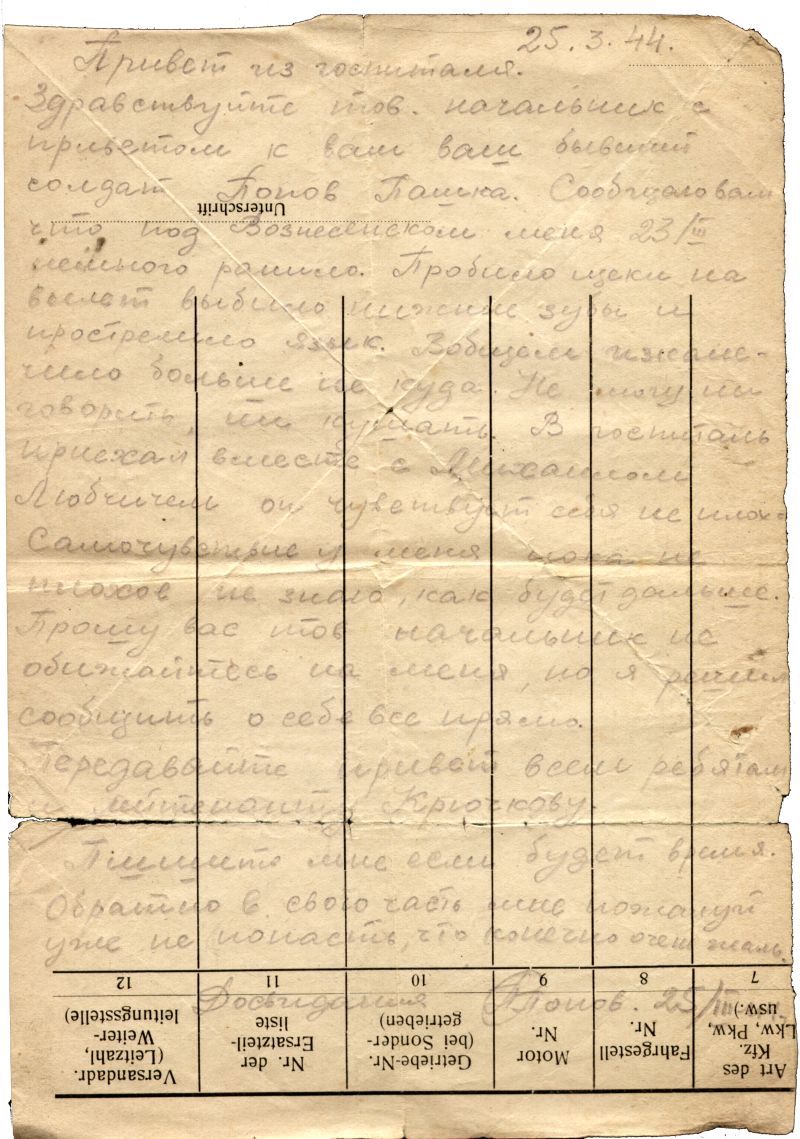 25. 3. 44.
Привет из госпиталя.
Здравствуйте тов. начальник с
приветом к вам ваш бывший
солдат Попов Пашка. Сообщаю вам
Unterschrift
что под Вознесенском меня 23/III
немного ранило. Пробило щеки на
вылет выбило нижние зубы и
прострелило язык. Вобщем искале-
чило больше не куда. Не могу ни
говорить, ни кушать. В госпиталь
приехал вместе с Михаилом
Любчичем он чувствует себя не плохо
Самочувствие у меня пока не
плохое не знаю, как будет дальше.
Прошу вас тов начальник не
обижайтесь на меня, но я решил
сообщить о себе все прямо.
Передавайте привет всем ребятам
и лейтенанту Крючкову.
Пишите мне если будет время.
Обратно в свою часть мне пожалуй
уже не попасть, что конечно очень жаль.
Досвидания Попов. 25/III
7 8 9 10 11 12
Art des
Kfz.
Lkw, Pkw,
usw.)
Fahrgestell
Nr.
Motor
Nr.
Getriebe-Nr.
(bei Sonder-
getrieben)
Nr. der
Ersatzteil-
liste
Versandadr.
(Leitzahl,
Weiter-
leitungsstelle)